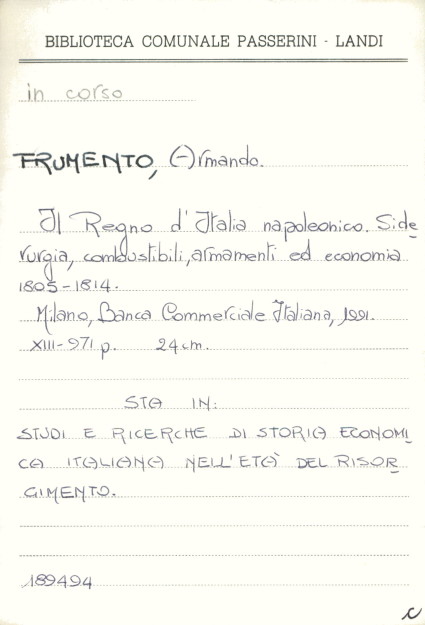 BIBLIOTECA COMUNALE PASSERINI - LANDI
in corso
FRUMENTO, Armando.
Il Regno d'Italia napoleonico. Side
rurgia, combustibili, armamenti ed economia
1805-1814.
Milano, Banca Commerciale Italiana, 1991.
XIII-971 p. 24 cm.
STA IN:
STUDI E RICERCHE DI STORIA ECONOMI
CA ITALIANA NELL'ETÀ DEL RISOR
GIMENTO.
189494
c